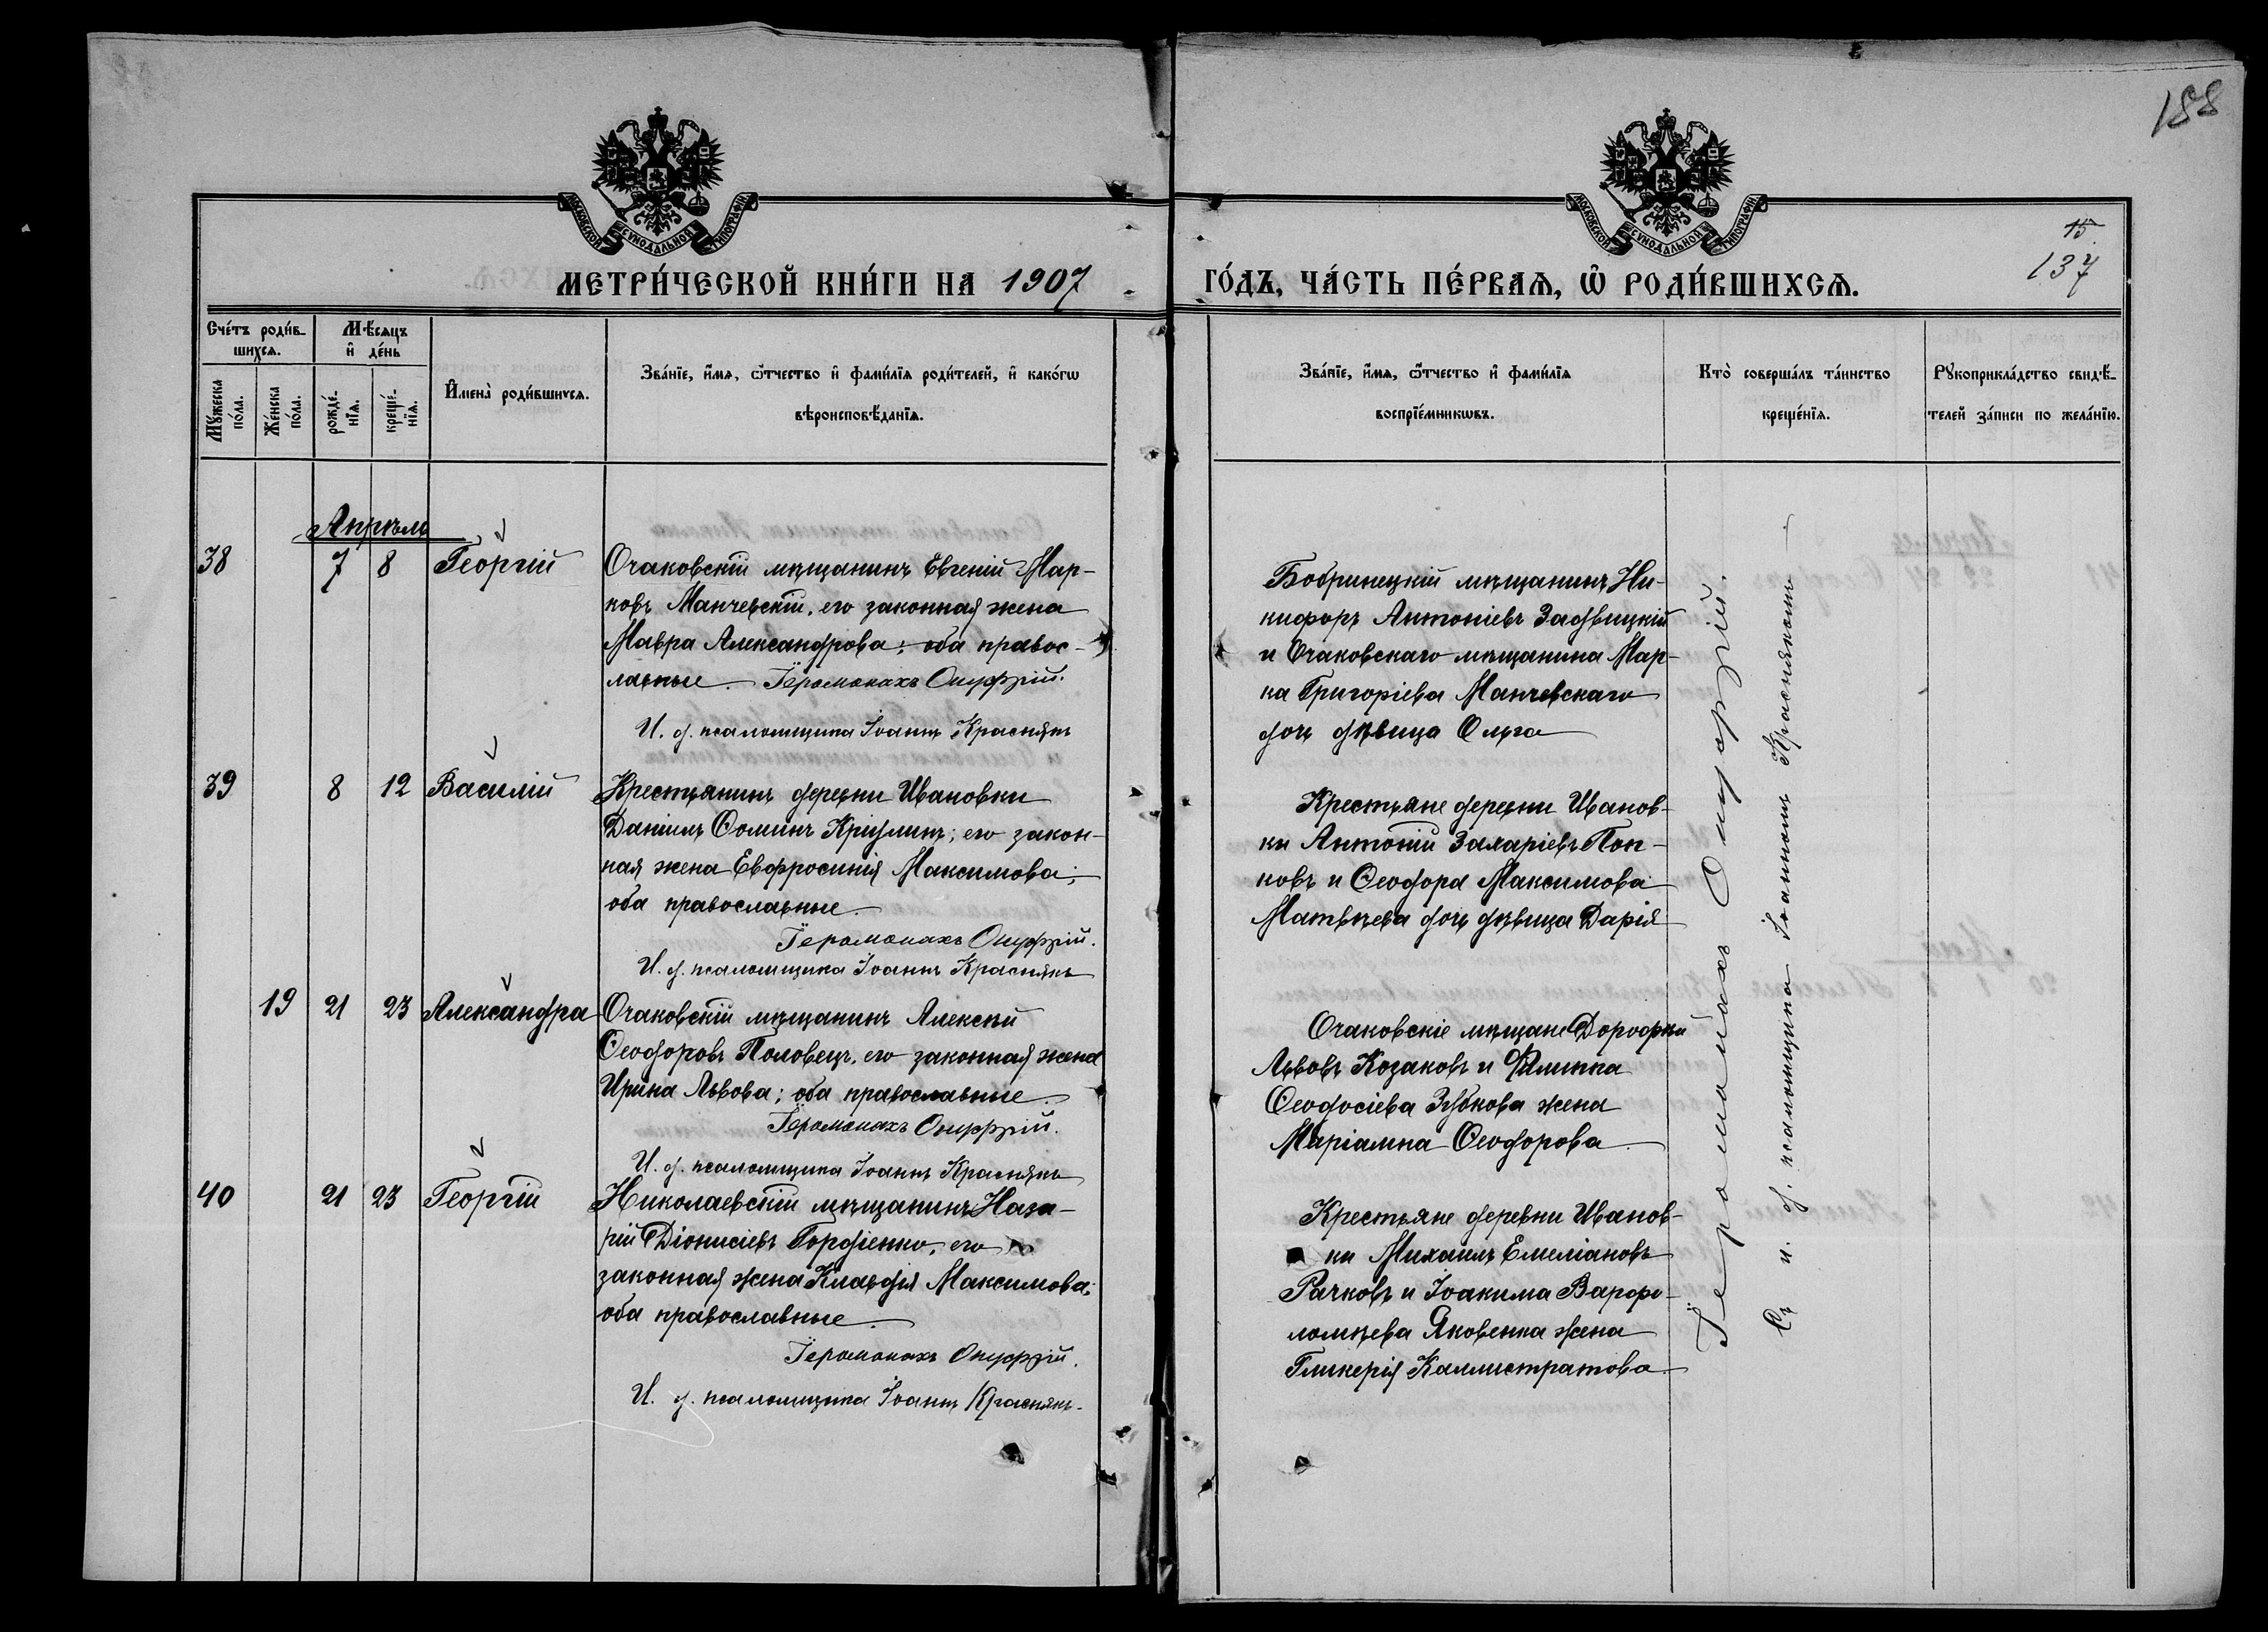 188
МОСКОВСКОЙ СУНОДАЛЬНОЙ ТИПОГРАФІИ
МОСКОВСКОЙ СУНОДАЛЬНОЙ ТИПОГРАФІИ
15
137
МЕТРИ́ЧЕСКОЙ КНИ́ГИ НА 1907 ГО́ДЪ, ЧА́СТЬ ПЕ́РВАѦ, Ѡ҆ РОДИ́ВШИХСѦ.
Счéтъ роди́в-
шихсѧ.
Мꙋ́жеска
по́ла.
Же́нска
по́ла.
Мѣ́сѧцъ
и҆ де́нь
рожде́-
нїѧ.
креще́-
нїѧ.
И҆мена̀ роди́вшихсѧ.
Зва́нїе, и҆́мѧ, ѻ҆́тчество и҆ фами́лїѧ роди́телей, и҆ како́гѡ
вѣроисповѣ́данїѧ.
Зва́нїе, и҆́мѧ, ѻ҆́тчество и҆ фами́лїѧ
воспрїе́мникѡвъ.
Кто̀ соверша́лъ та́инство
креще́нїѧ.
Рꙋкоприкла́дство свидѣ́-
телей за́писи по жела́нїю.
Апрѣль
38 7 8 Георгій
Очаковскій мѣщанинъ Евгеній Мар-
ковъ Манчевскій, его законная жена
Мавра Александрова; оба правос-
лавные. Іеромонахъ Онуфрій.
И. д. псаломщика Іоаннъ Краснякъ
Бобринецкій мѣщанинъ Ни-
кифоръ Антоніевъ Задвицкій
и Очаковскаго мѣщанина Мар-
ка Григоріева Манчевскаго
дочь дѣвица Ольга
39 8 12 Василій
Крестьянинъ деревни Ивановки
Даніилъ Ѳоминъ Кридлинъ; его закон-
ная жена Евфросинія Максимова;
оба православные.
Іеромонахъ Онуфрій.
И. д. псаломщика Іоаннъ Краснякъ
Крестьяне деревни Иванов-
ки Антоній Захаріевъ Поп-
ковъ и Ѳеодора Максимова
Матвѣева дочь дѣвица Дарія
19 21 23 Александра
Очаковскій мѣщанинъ Алексѣй
Ѳеодоровъ Половецъ, его законная жена
Ирина Львова; оба православные.
Іеромонахъ Онуфрій.
И. д. псаломщика Іоаннъ Краснякъ
Очаковскіе мѣщане Дороѳей
Львовъ Козаковъ и Филиппа
Ѳеодосіева Зубкова жена
Маріамна Ѳеодорова.
40 21 23 Георгій
Николаевскій мѣщанинъ Наза-
рій Діонисіевъ Гордіенко, его
законная жена Клавдія Максимова;
оба православные.
Іеромонахъ Онуфрій.
И. д. псаломщика Іоаннъ Краснякъ.
Крестьяне деревни Иванов-
ки Михаилъ Емеліановъ
Рачковъ и Іоакима Варфо-
ломѣева Яковенка жена
Гликерія Каллистратова.
Іеромонахъ Онуфрій.
Съ и. д. псаломщика Іоанномъ Краснякомъ